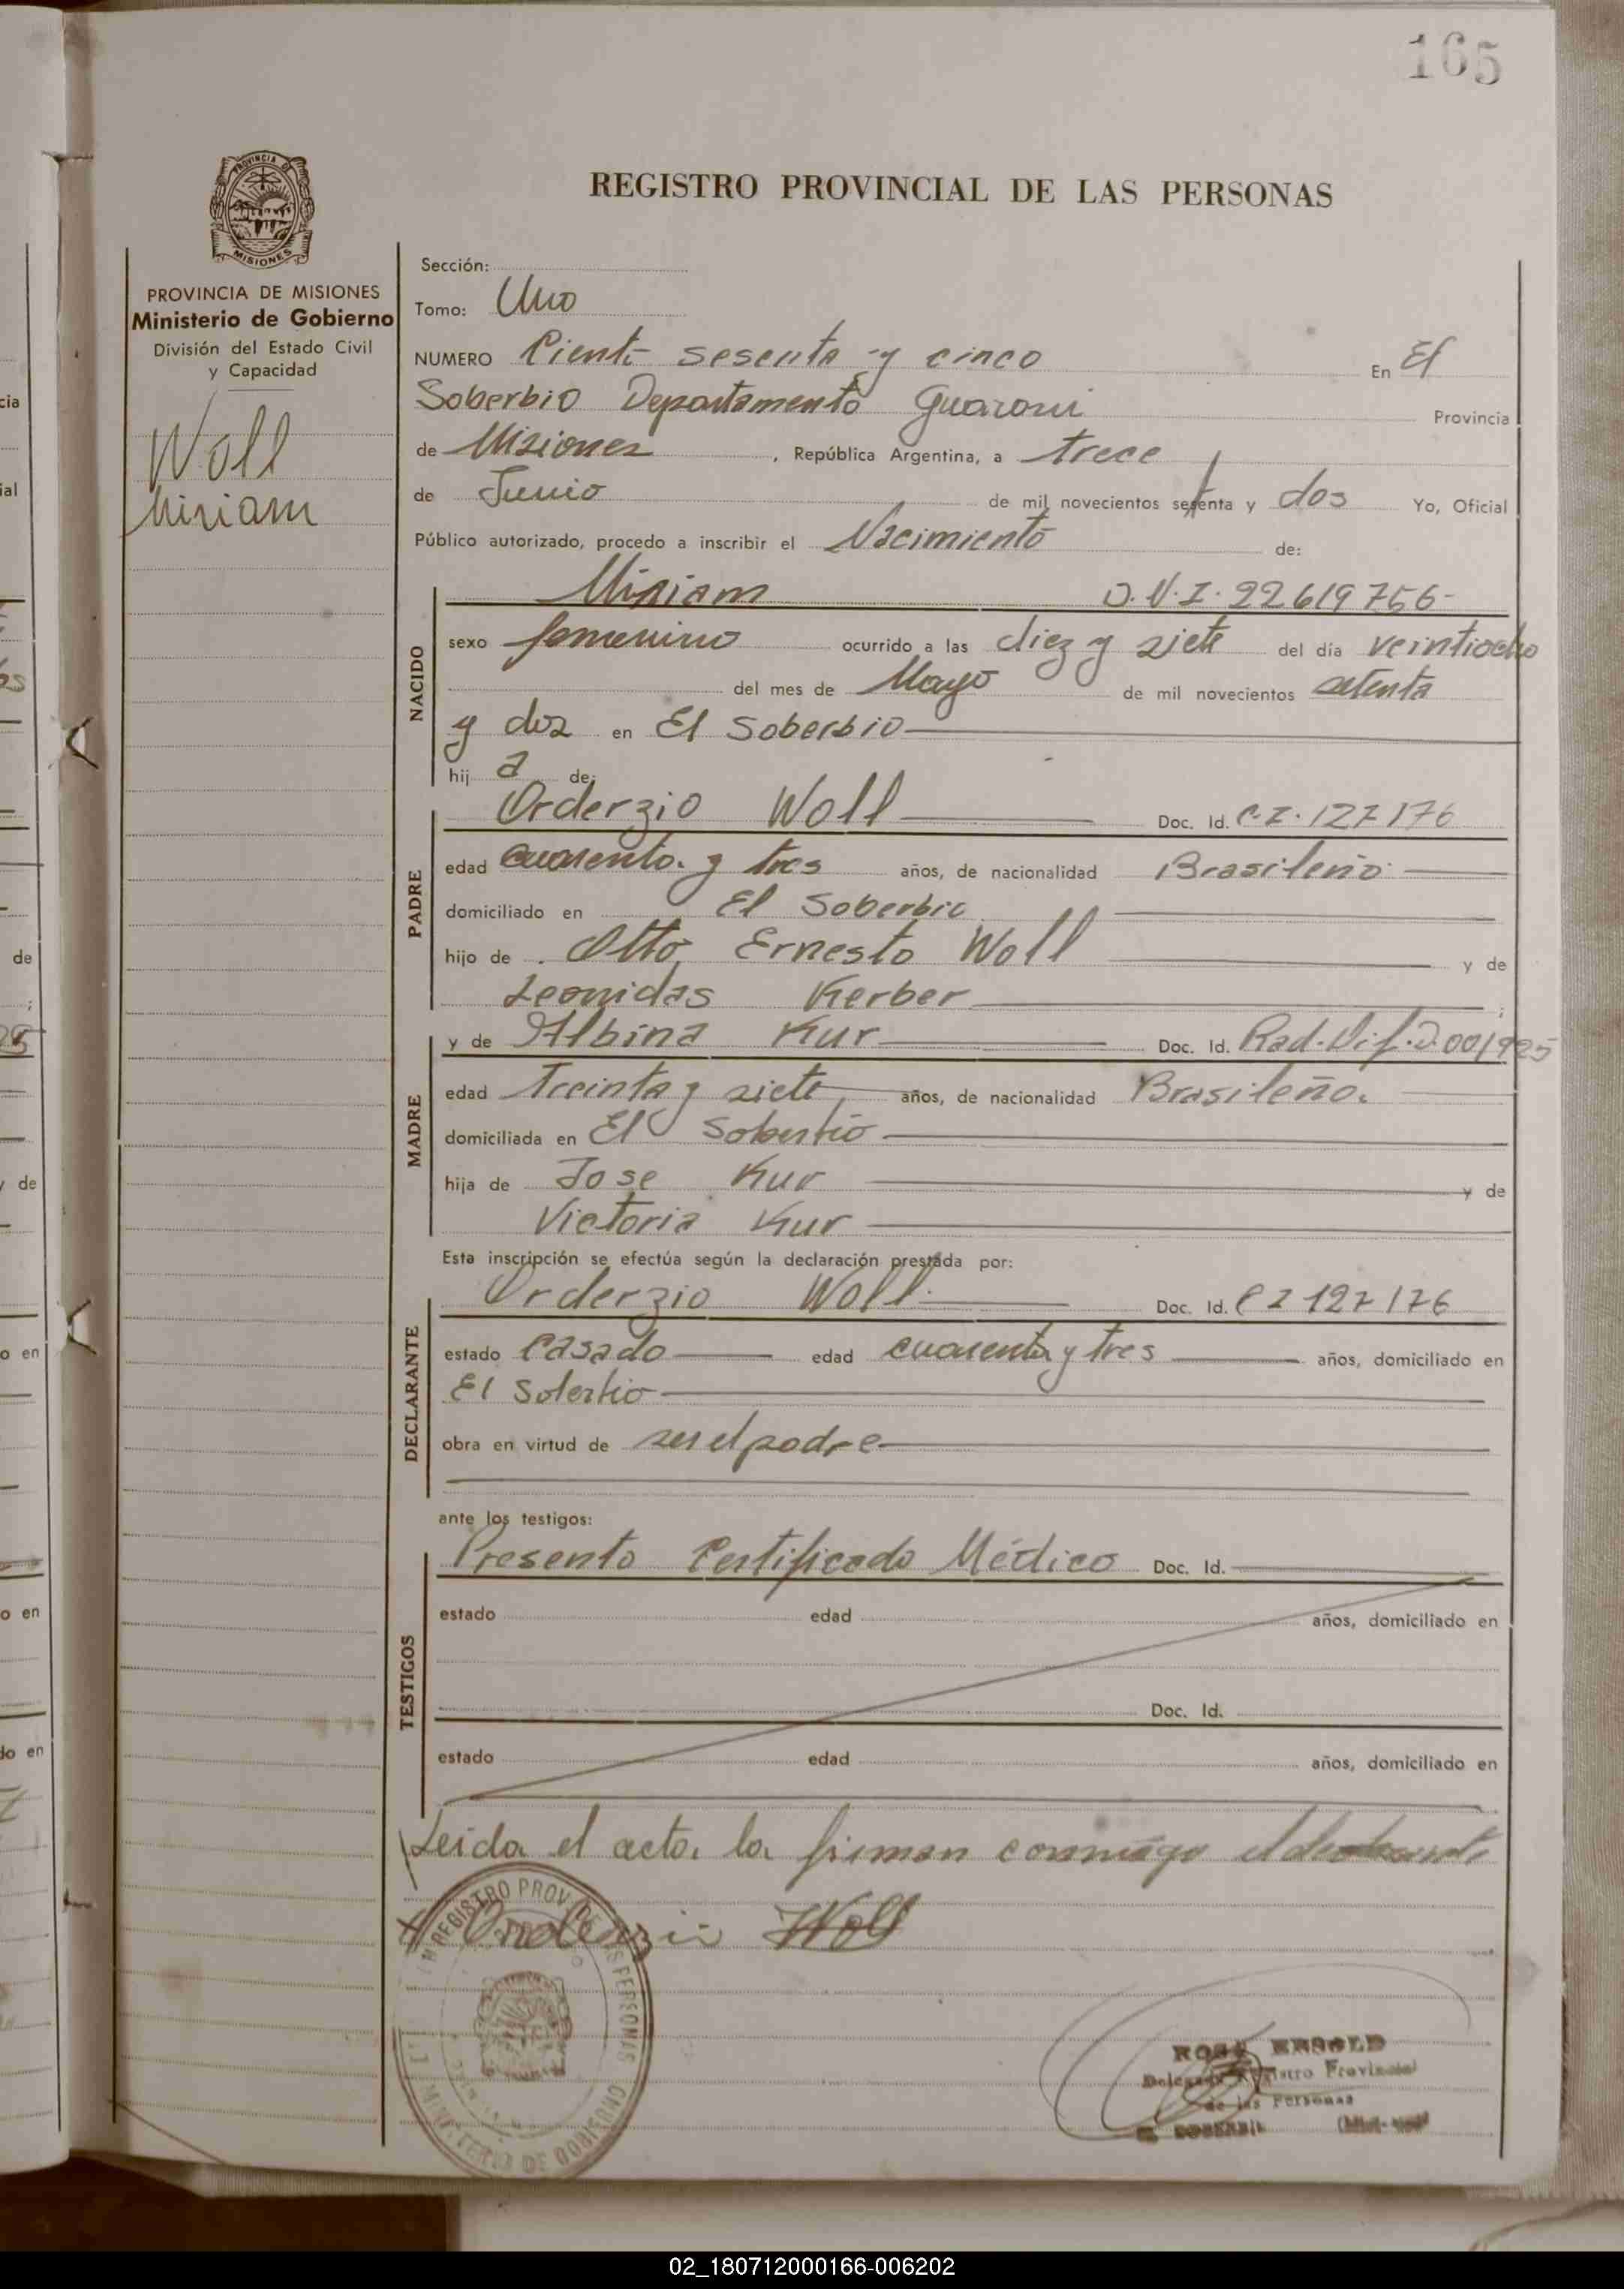 165
REGISTRO PROVINCIAL DE LAS PERSONAS
PROVINCIA DE MISIONES
PROVINCIA DE MISIONES
Ministerio de Gobierno
División del Estado Civil
y Capacidad
Woll
Miriam
Sección:
Tomo: Uno
NUMERO Ciento sesenta y cinco En El
Soberbio Departamento Guarani Provincia
de Misiones, República Argentina, a trece
de Junio de mil novecientos setenta y dos Yo, Oficial
Público autorizado, procedo a inscribir el Nacimiento de:
NACIDO
Miriam D.N.I. 22619756-
sexo femenino ocurrido a las diez y siete del día veintiocho
del mes de Mayo de mil novecientos setenta
y dos en El Soberbio
hij a de:
PADRE
Orderzio Woll Doc. Id. C.I. 127176
edad cuarenta y tres años, de nacionalidad Brasileño
domiciliado en El Soberbio
hijo de Otto Ernesto Woll y de
Leonidas Kerber ;
MADRE
y de Albina Kur Doc. Id. Rad. Dif. D.001925
edad Treinta y siete años, de nacionalidad Brasileño.
domiciliada en El Soberbio
hija de Jose Kur y de
Victoria Kur
Esta inscripción se efectúa según la declaración prestada por:
DECLARANTE
Orderzio Woll Doc. Id. C I 127176
estado Casado edad cuarenta y tres años, domiciliado en
El Soberbio
obra en virtud de ser el padre
ante los testigos:
TESTIGOS
Presento Certificado Médico Doc. Id.
estado edad años, domiciliado en
Doc. Id.
estado edad años, domiciliado en
Leida el acta, la firman conmigo el declarante
Orderzio Woll
REGISTRO PROV. DE LAS PERSONAS
MINISTERIO DE GOBIERNO
Delegada Registro Provincial
de las Personas
02_180712000166-006202